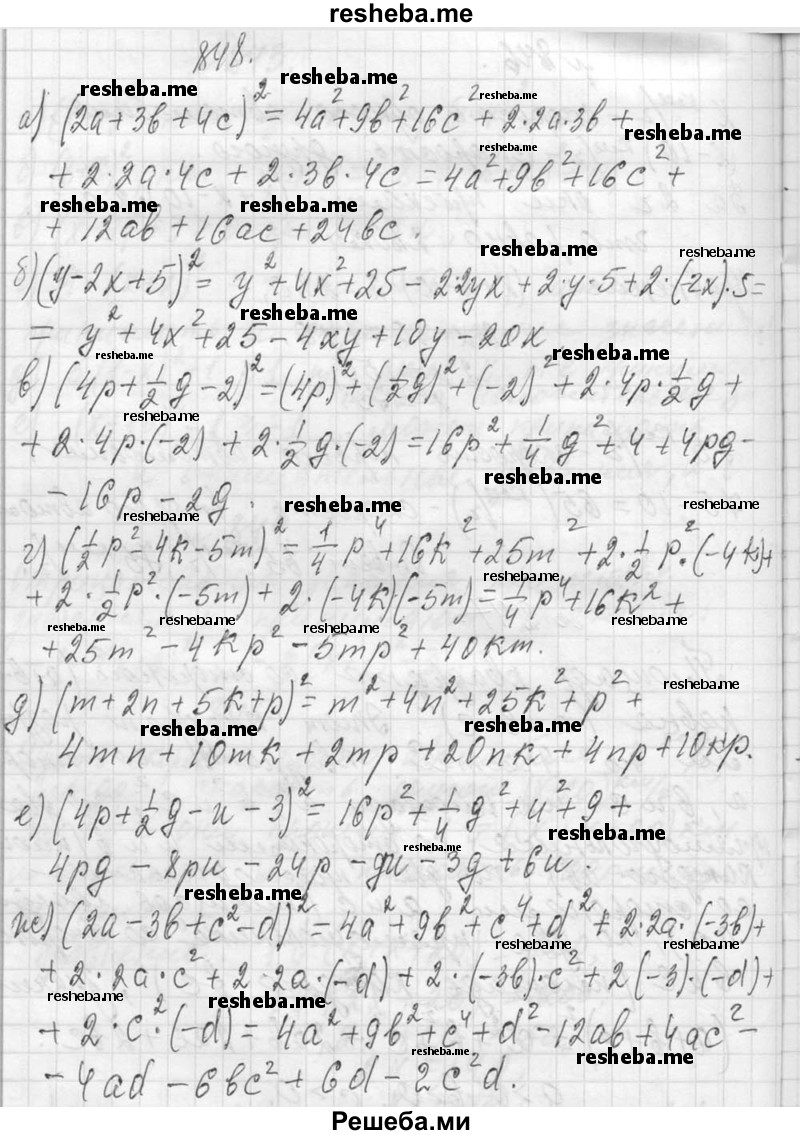 resheba.me
848.
а) (2a+3b+4c)² = 4a²+9b²+16c²+2·2a·3b+
+2·2a·4c+2·3b·4c=4a²+9b²+16c²+
+12ab+16ac+24bc.
б)(y-2x+5)² = y²+4x²+25-2·2yx+2·y·5+2·(-2x)·5=
= y²+4x²+25-4xy+10y-20x
в) (4p+½g-2)²=(4p)²+(½g)²+(-2)²+2·4p·½g+
+2·4p·(-2)+2·½g·(-2)=16p²+¼g²+4+4pg-
-16p-2g.
г) (½p²-4k-5m)²=¼p⁴+16k²+25m²+2·½p²·(-4k)+
+2·½p²·(-5m)+2·(-4k)(-5m)=¼p⁴+16k²+
+25m²-4kp²-5mp²+40km.
д) (m+2n+5k+p)²=m²+4n²+25k²+p²+
4mn+10mk+2mp+20nk+4np+10kp.
е) (4p+½g-u-3)²=16p²+¼g²+u²+9+
4pg-8pu-24p-gu-3g+6u.
ж) (2a-3b+c²-d)²=4a²+9b²+c⁴+d²+2·2a·(-3b)+
+2·2a·c²+2·2a·(-d)+2·(-3b)·c²+2(-3)·(-d)+
+2·c²·(-d)=4a²+9b²+c⁴+d²-12ab+4ac²-
-4ad-6bc²+6d-2c²d.
Решеба.ми